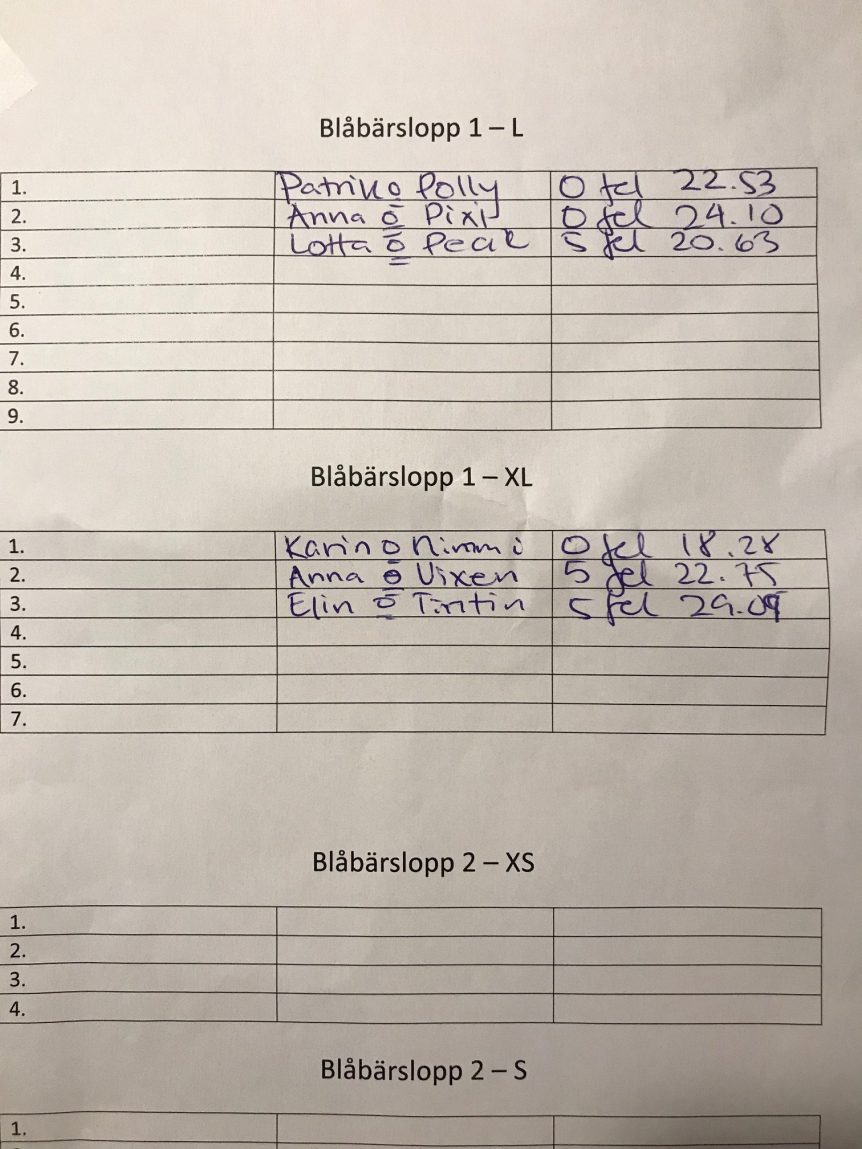 Blåbärslopp 1 – L
1. Patrik o Polly 0 fel 22.53
2. Anna o Pixi 0 fel 24.10
3. Lotta o Peak 5 fel 20.63
4.
5.
6.
7.
8.
9.
Blåbärslopp 1 – XL
1. Karin o Nimmi 0 fel 18.28
2. Anna o Vixen 5 fel 22.75
3. Elin o Tintin 5 fel 29.09
4.
5.
6.
7.
Blåbärslopp 2 – XS
1.
2.
3.
4.
Blåbärslopp 2 – S
1.